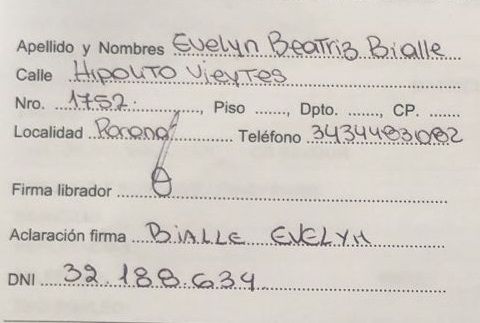 Apellido y Nombres Evelyn Beatriz Bialle
Calle Hipolito Vieytes
Nro. 1752. , Piso ......., Dpto. ......., CP. .......
Localidad Paraná Teléfono 3434483082
Firma librador
Aclaración firma BiALLE EVELYN
DNI 32.188.634